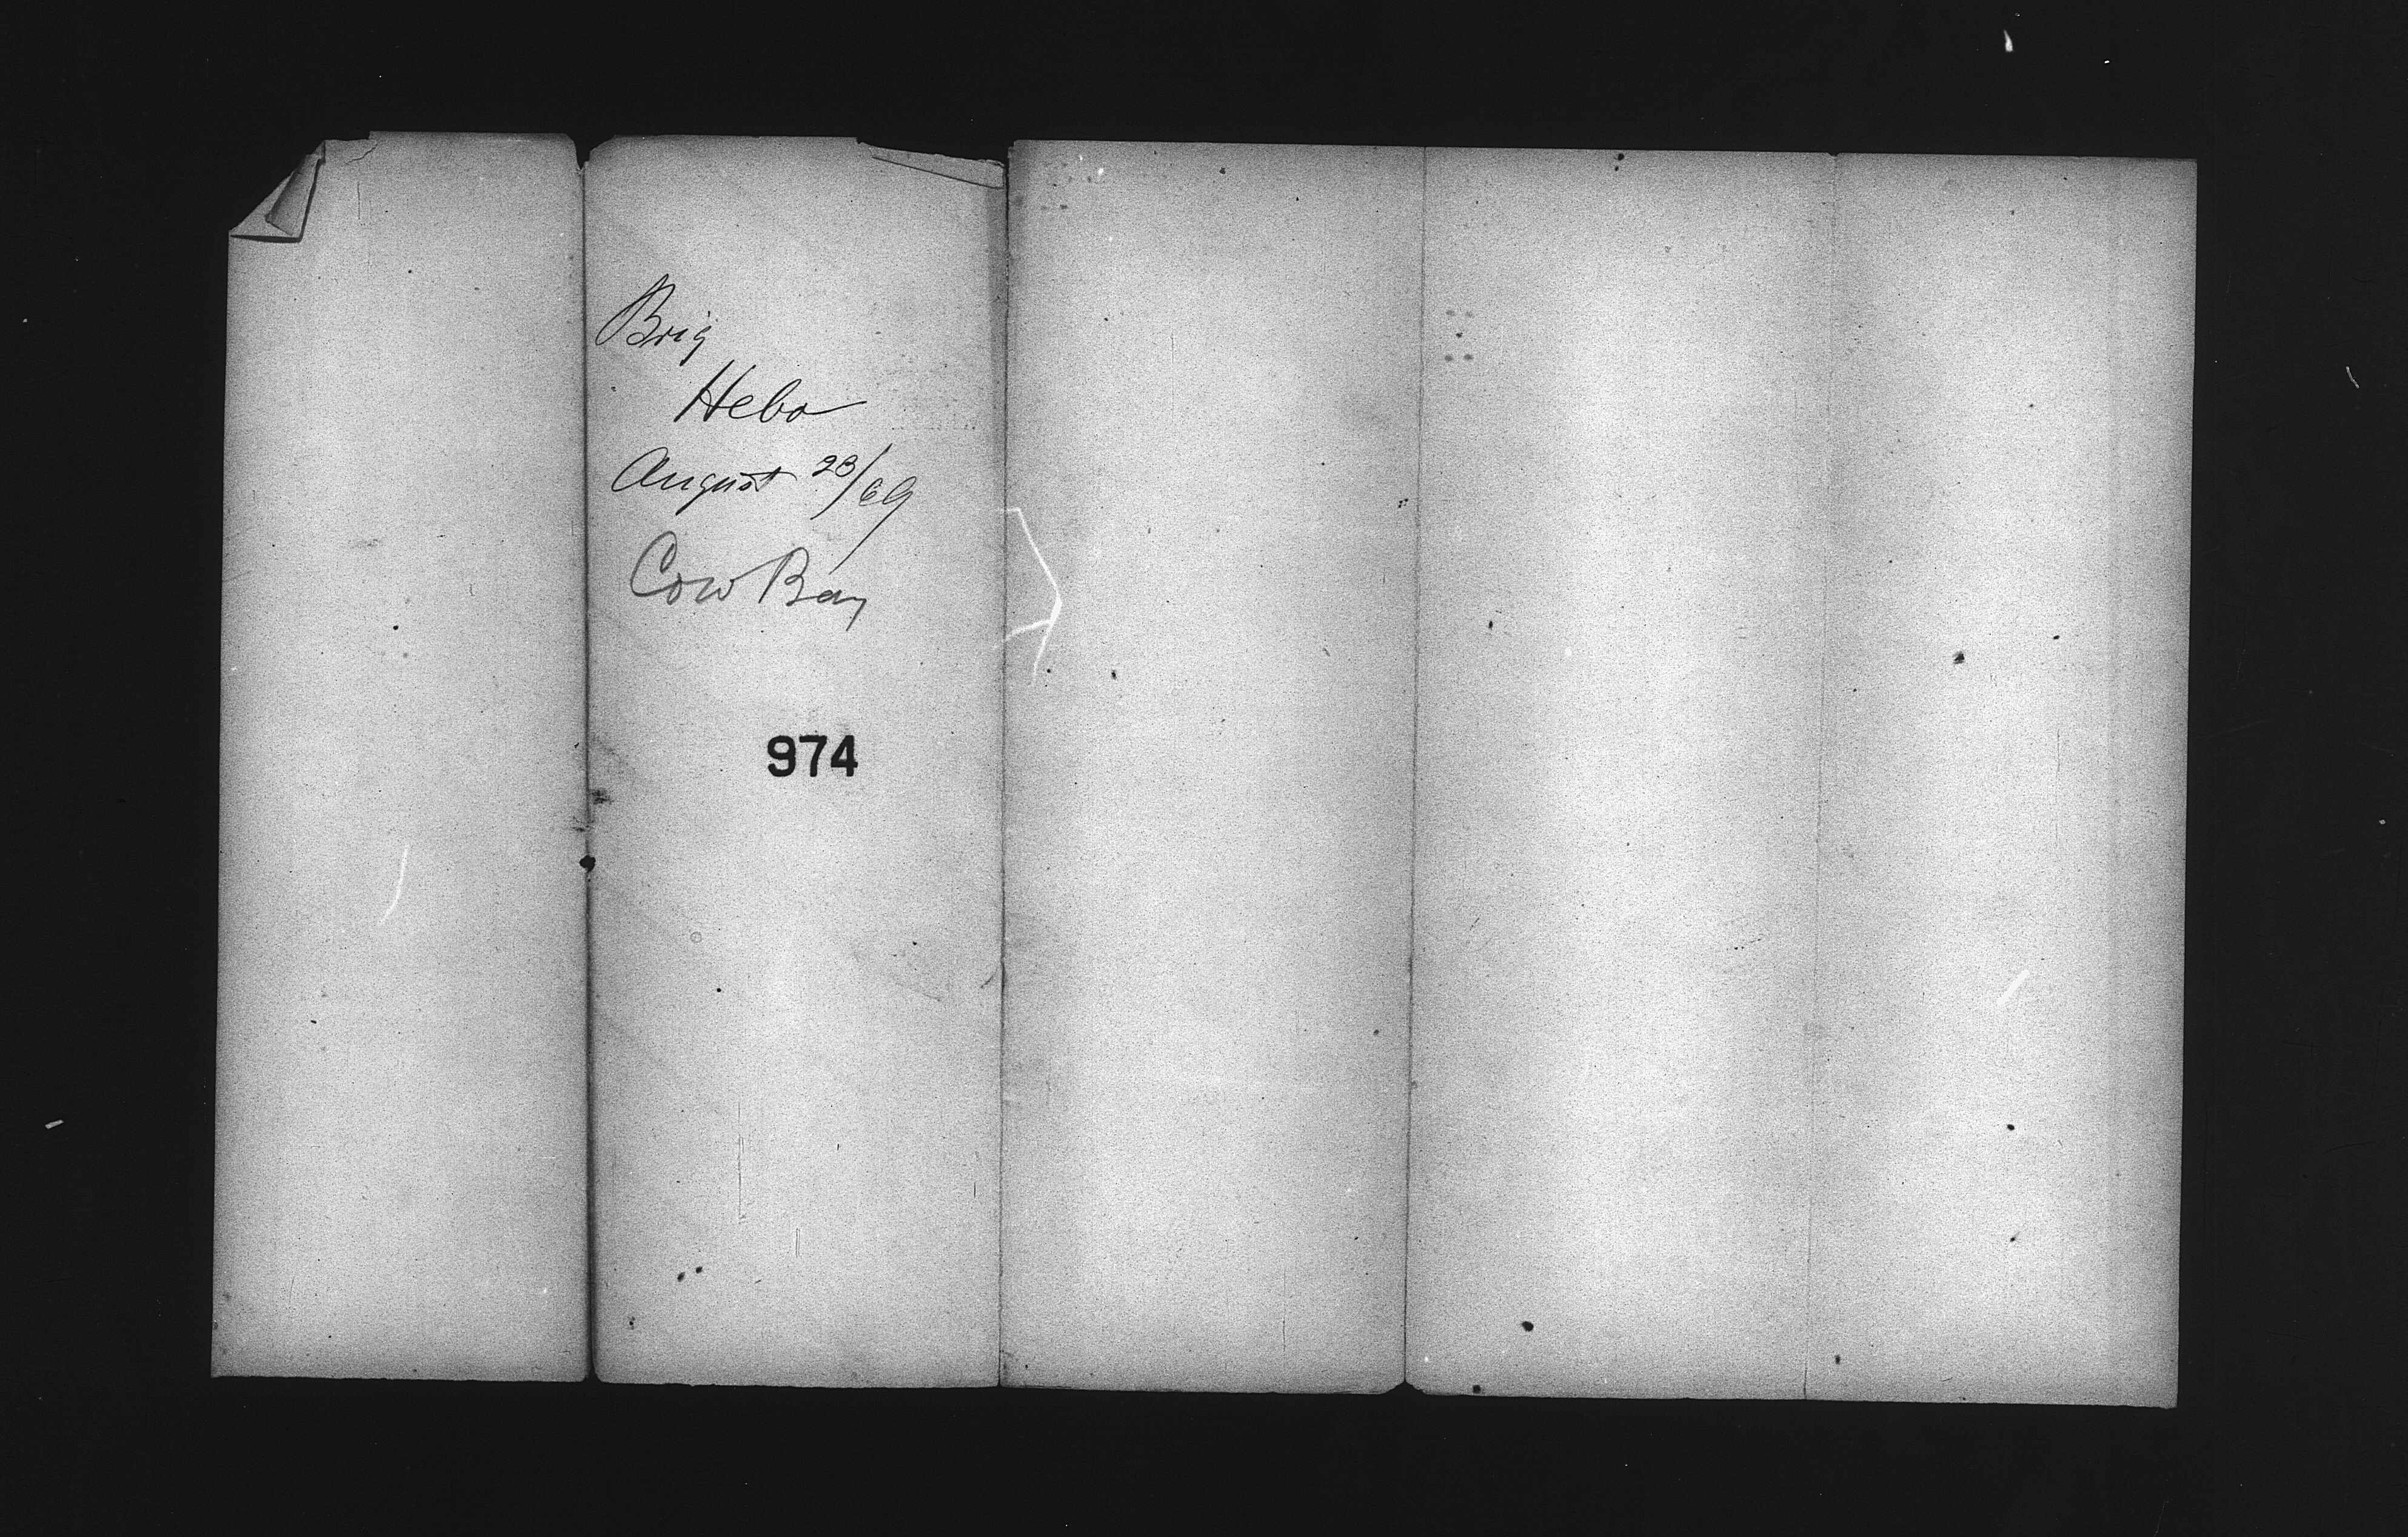 Brig
Hebo
August 28/69
Cow Bay
974